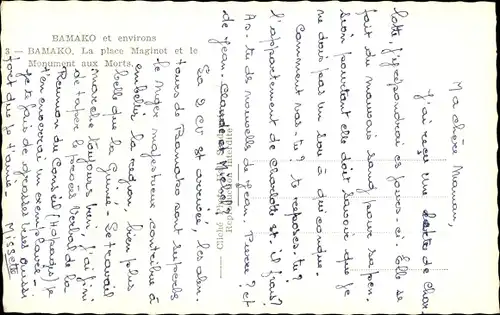 BAMAKO et environs
3 — BAMAKO. La place Maginot et le
Monument aux Morts.
Ma chère Maman,
J'ai reçu une carte de Char
lotte, j'y répondrai ces jours-ci. Elle se
fait du mauvais sang pour sa pen
sion pourtant elle doit savoir que je
ne dois pas un sou à qui conque.
Comment vas-tu? te reposes-tu?
l'appartement de Charlotte est-il frais?
As-tu de nouvelle de Jean-Pierre? et
de Jean-Claude et Michel?
La 2 CV est arrivée, les alen-
tours de Bamako sont superbs
le Niger majestueux contribue à
embellir la region, bien plus
belle que la Guinée - Le travail
marche toujours bien, j'ai fini
de taper le Procès Verbal de la
Reunion du Conseil ( pages) je
t'en enverrai un exemplaire -
Je te fais de grosses bises aussi
fort que je t'aime -
Missette